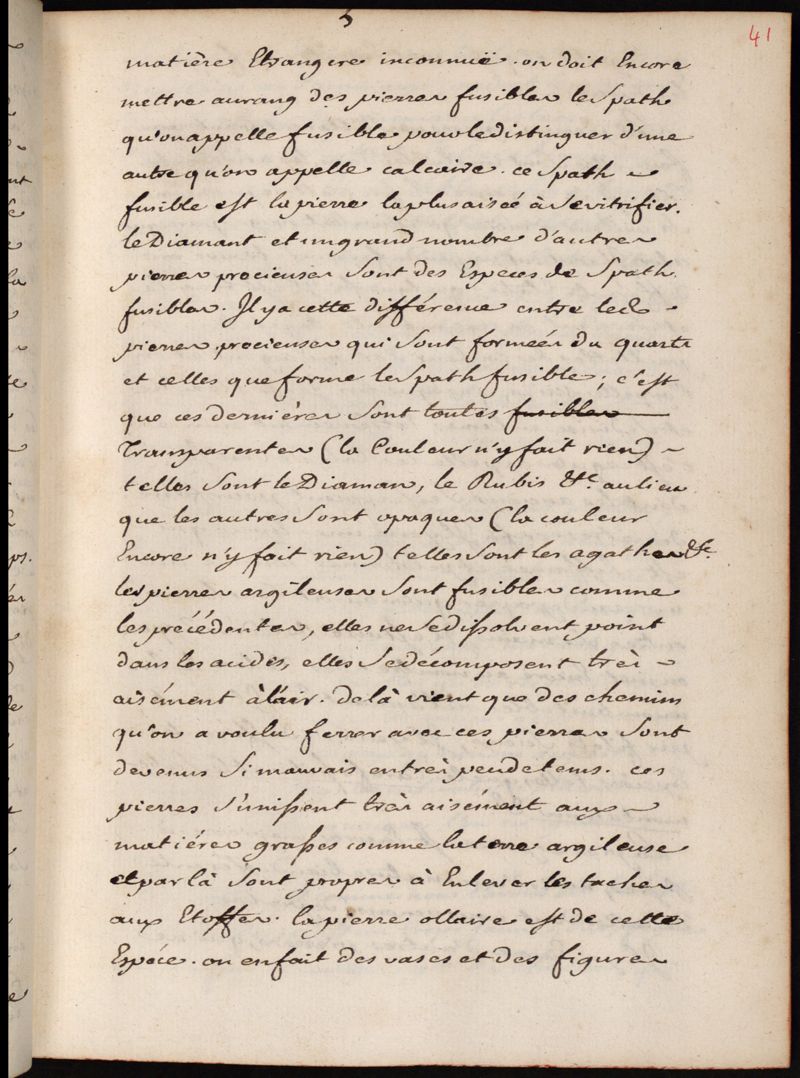 5
41
matière Etrangere inconnuë. on doit Encore
mettre au rang des pierres fusibles le Spath
qu'on appelle fusible pour le distinguer d'une
autre qu'on appelle calcaire. ce Spath
fusible est la pierre la plus aisée à se vitrifier.
le Diamant et un grand nombre d'autres
pierres precieuses sont des Especes de Spath
fusibles. Il y a cette différence entre les
pierres precieuses qui sont formeés du quartz
et celles que forme le Spath fusible; c'est
que ces derniéres sont toutes fusibles
Transparentes (la Couleur n'y fait rien)
telles sont le Diaman, le Rubis &c. au lieu
que les autres sont opaques (la couleur
Encore n'y fait rien) telles sont les agathes &c.
les pierres argileuses sont fusibles comme
les précédentes, elles ne se dissolvent point
dans les acides, elles se décomposent très
aisément à l'air. de là vient que des chemins
qu'on a voulu ferrer avec ces pierres sont
devenus si mauvais en très peu de tems. ces
pierres s'unissent très aisément aux
matiéres grasses comme la terre argileuse
et par là sont propres à Enlever les taches
aux Etoffes. la pierre ollaire est de cette
Espéce. on en fait des vases et des figures